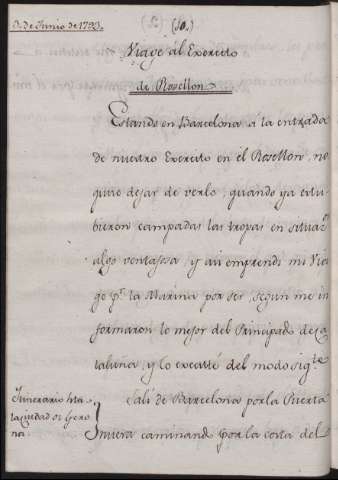 3. de Junio de 1793.
(10.)
Viage al Exercito
de Rosellon
Estando en Barcelona a la entrada
de nuestro Exercito en el Rosellon, no
quise dejar de verlo, quando ya estu-
bieron campadas las tropas en situacn
algo ventajosa, y asi emprendi mi Via
ge pr la Marina por ser, segun me in
formaron lo mejor del Principado de Ca
taluña, y lo executé del modo sigte
Ytinerario hta
la Ciudad de Gero
na.
Sali de Barcelona por la Puerta
nueva caminando por la costa del